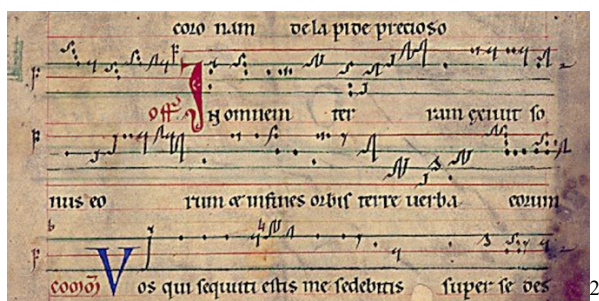 coro nam de la pide precioso
Off. In omnem ter ram exivit so
nus eo rum & in fines orbis terre verba eorum
Vos qui sequuti estis me sedebitis super se des
2